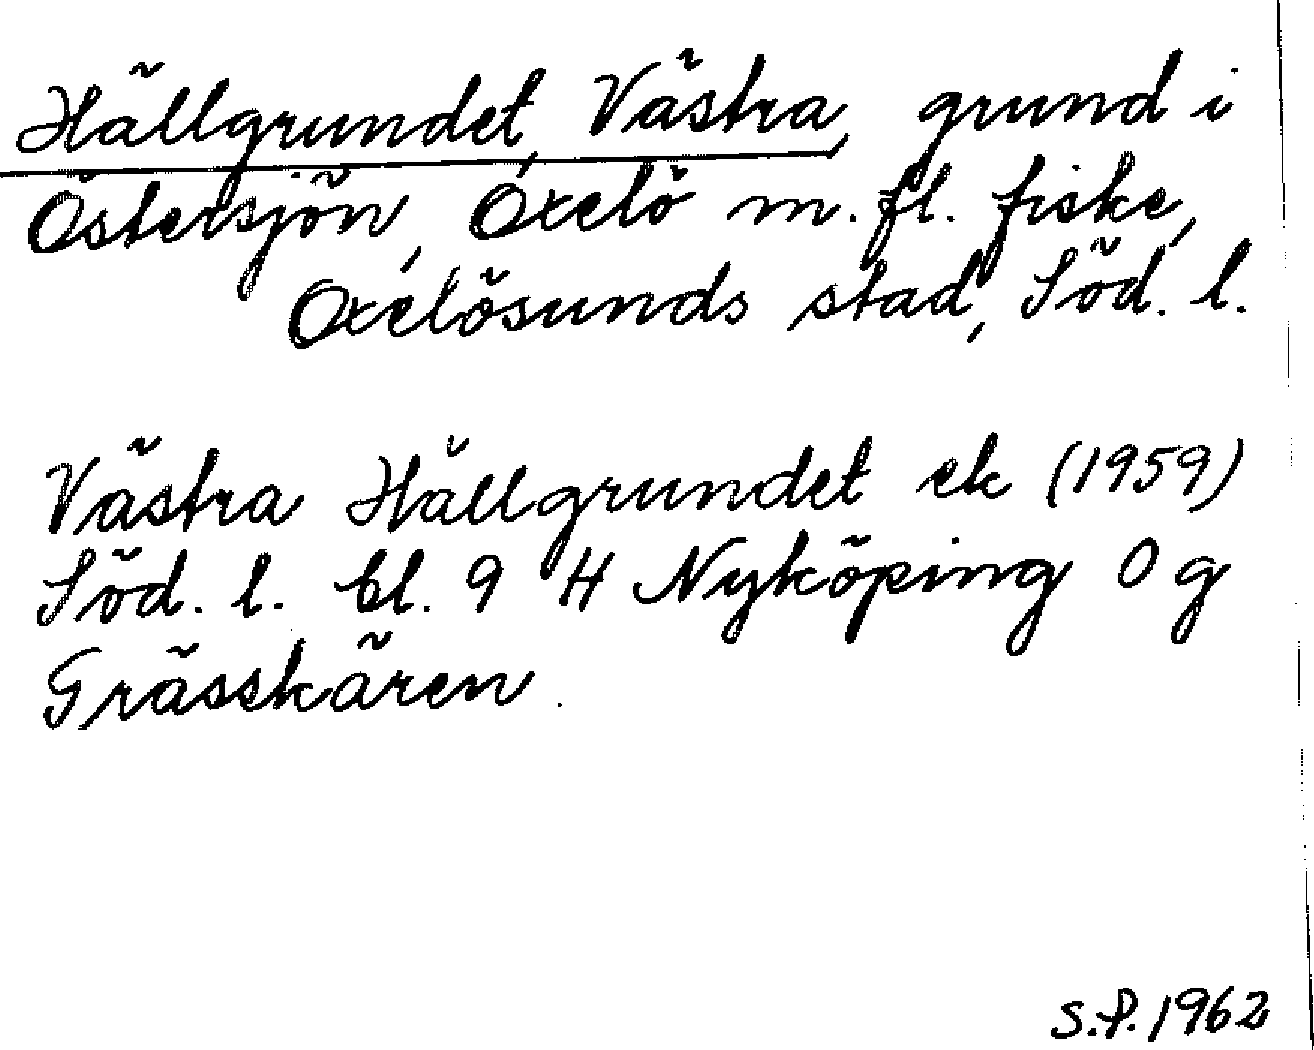 Hällgrundet, Västra, grund i
Östersjön, Oxelö m.fl. fiske,
Oxelösunds stad, Söd. l.
Västra Hällgrundet ek (1959)
Söd. l. bl. 9 H Nyköping O g
Grässkären.
S.P. 1962